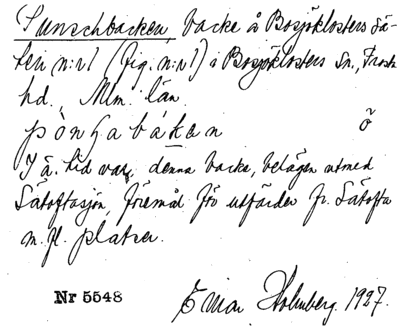 Punschbacken, backe å Bosjöklosters Sä-
teri n:r 1 (fig. n:r 1) i Bosjöklosters Sn., Frosta
hd., Mlm. län.
ö
I ä. tid var denna backe, belägen utmed
Sätoftasjön, föremål för utfärder fr. Sätofta
m. fl. platser.
Nr 5548
Einar Holmberg. 1927.